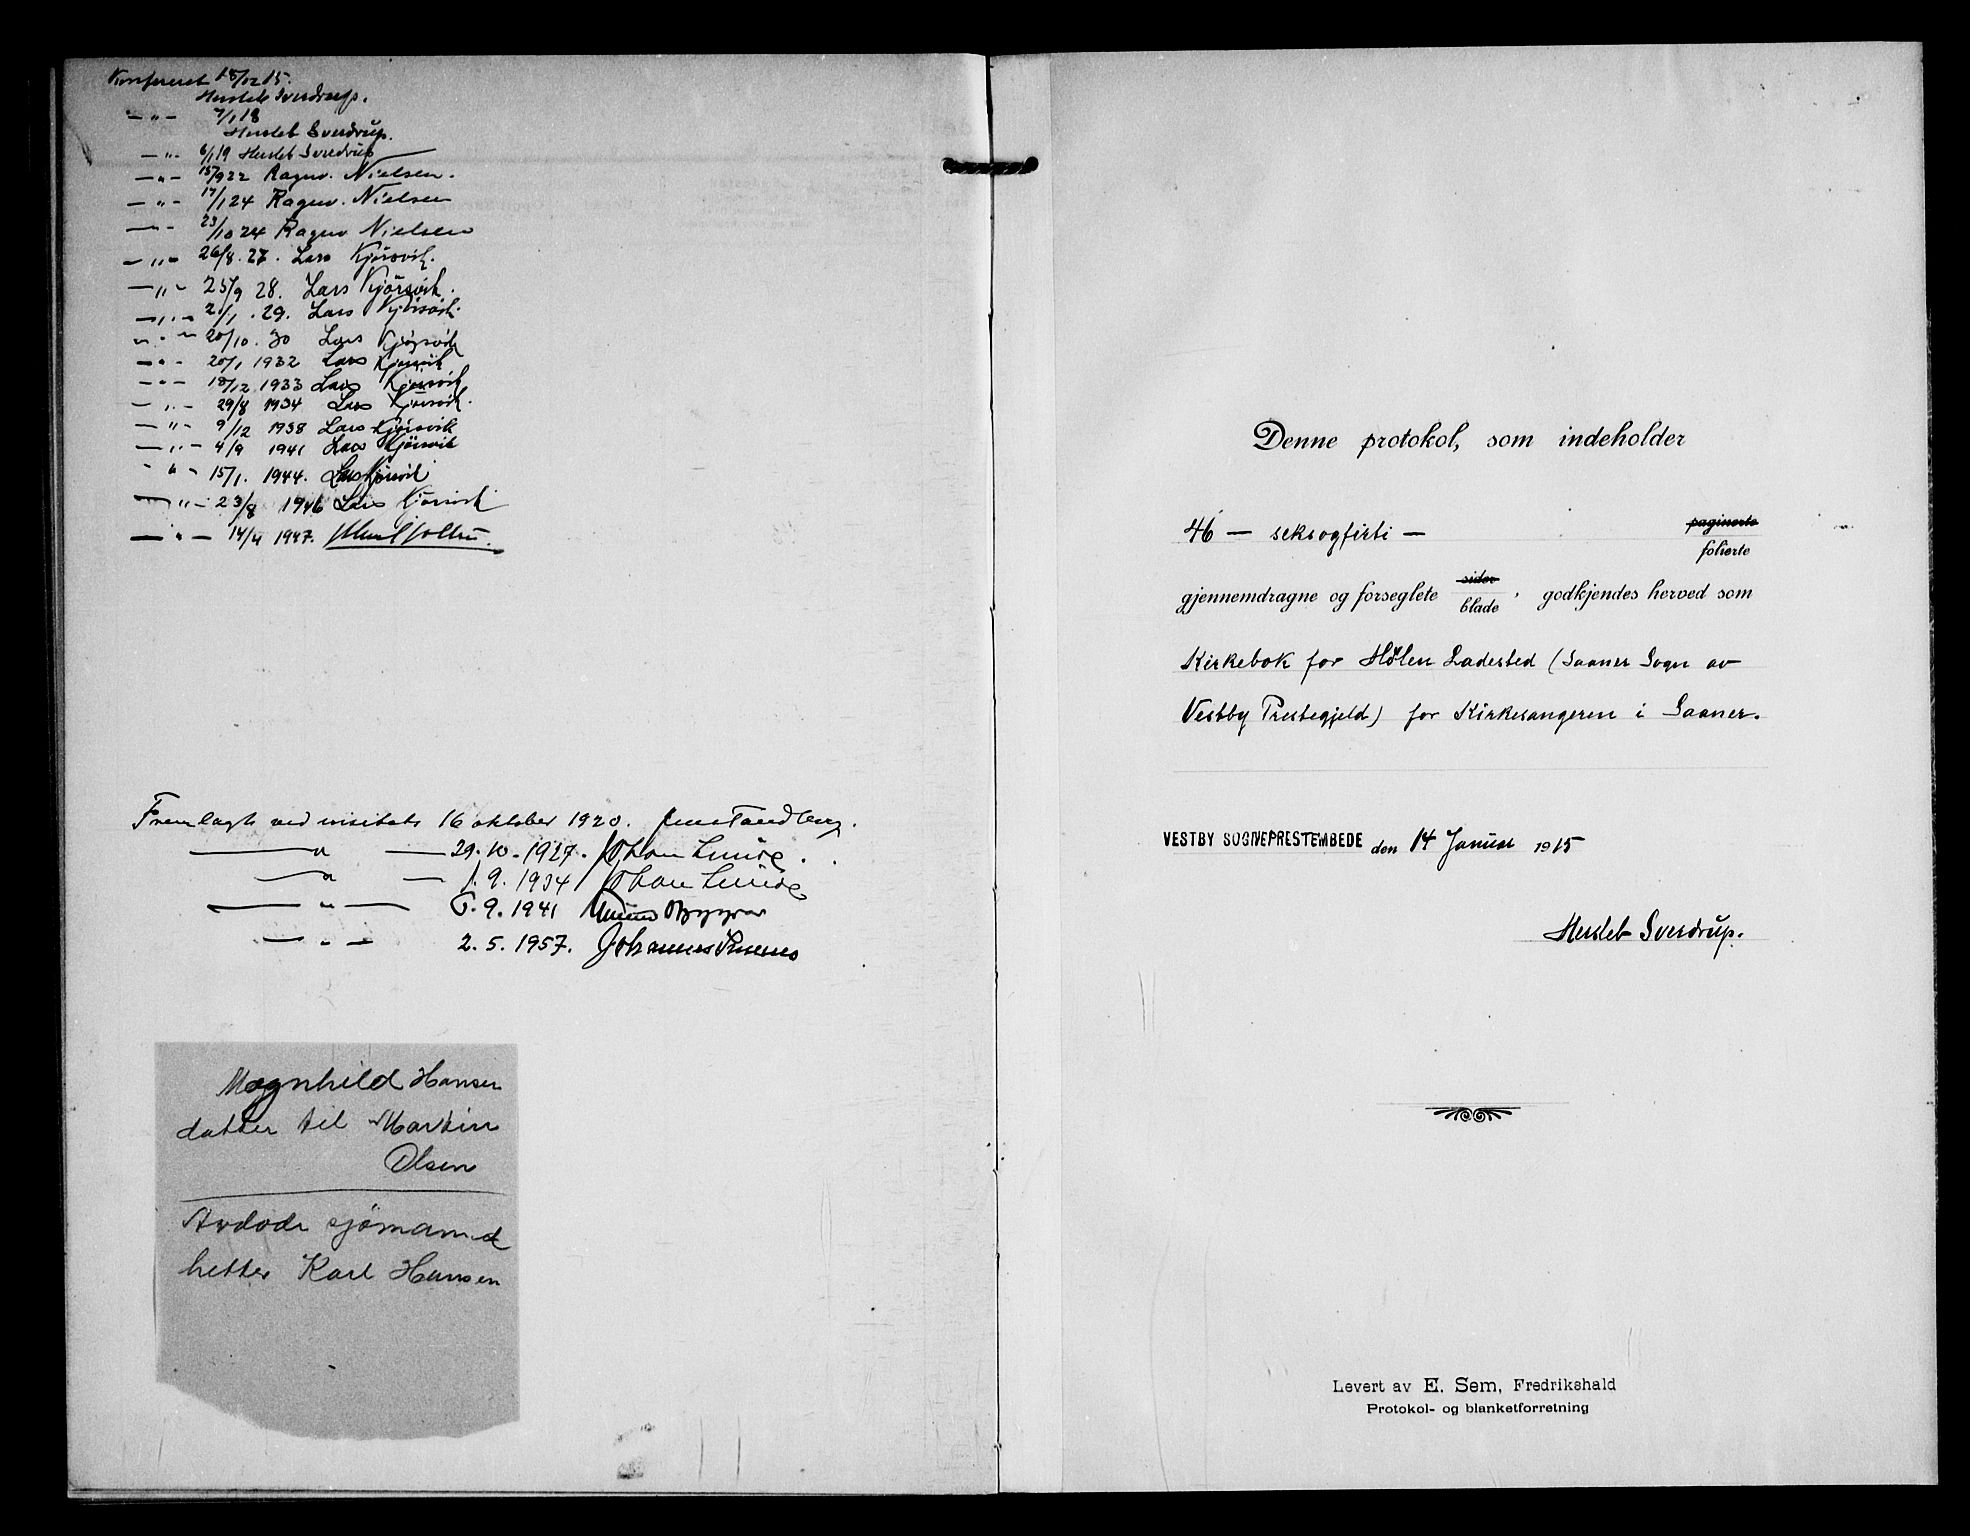 Konfereret 18/12 15.
Hersleb Sverdrup.
— " — 7/1 18
Hersleb Sverdrup.
— " — 6/1 19 Hersleb Sverdrup
— " — 15/9 22 Ragnv. Nielsen.
— " — 17/1 24 Ragnv. Nielsen
— " — 23/10 24 Ragnv Nielsen
— " — 26/8. 27. Lars Kjørsvik.
— " — 25/9 28. Lars Kjørsvik.
— " — 2/1. 29. Lars Kjørsvik.
— " — 20/10. 30 Lars Kjørsvik
— " — 20/1 1932 Lars Kjørsvik
— " — 18/12 1933 Lars Kjørsvik
— " — 29/8 1934 Lars Kjørsvik.
— " — 9/12 1938 Lars Kjørsvik
— " — 4/9 1941 Lars Kjørsvik
— " — 15/1. 1944. Lars Kjørsvik
— " — 23/8 1946 Lars Kjørsvik
— " — 14/4 1947.
Fremlagt ved visitats 16 oktober 1920. Jens Tandberg.
— " — 29.10.1927. Johan Lunde.
— " — 1.9.1934 Johan Lunde
— " — 5.9.1941
— " — 2.5.1957. Johannes Smemo
Magnhild Hansen
datter til Martin
Olsen
Avdøde sjømand
hetter Karl Hansen
Denne protokol, som indeholder
46 — seksogfirti — paginerte
folierte
gjennemdragne og forseglete sider
blade, godkjendes herved som
Kirkebok for Hølen Ladested (Saaner Sogn av
Vestby Prestegjeld) for Kirkesangeren i Saaner.
VESTBY SOGNEPRESTEMBEDE den 14 Januar 1915
Hersleb Sverdrup.
Levert av E. Sem, Fredrikshald
Protokol- og blanketforretning